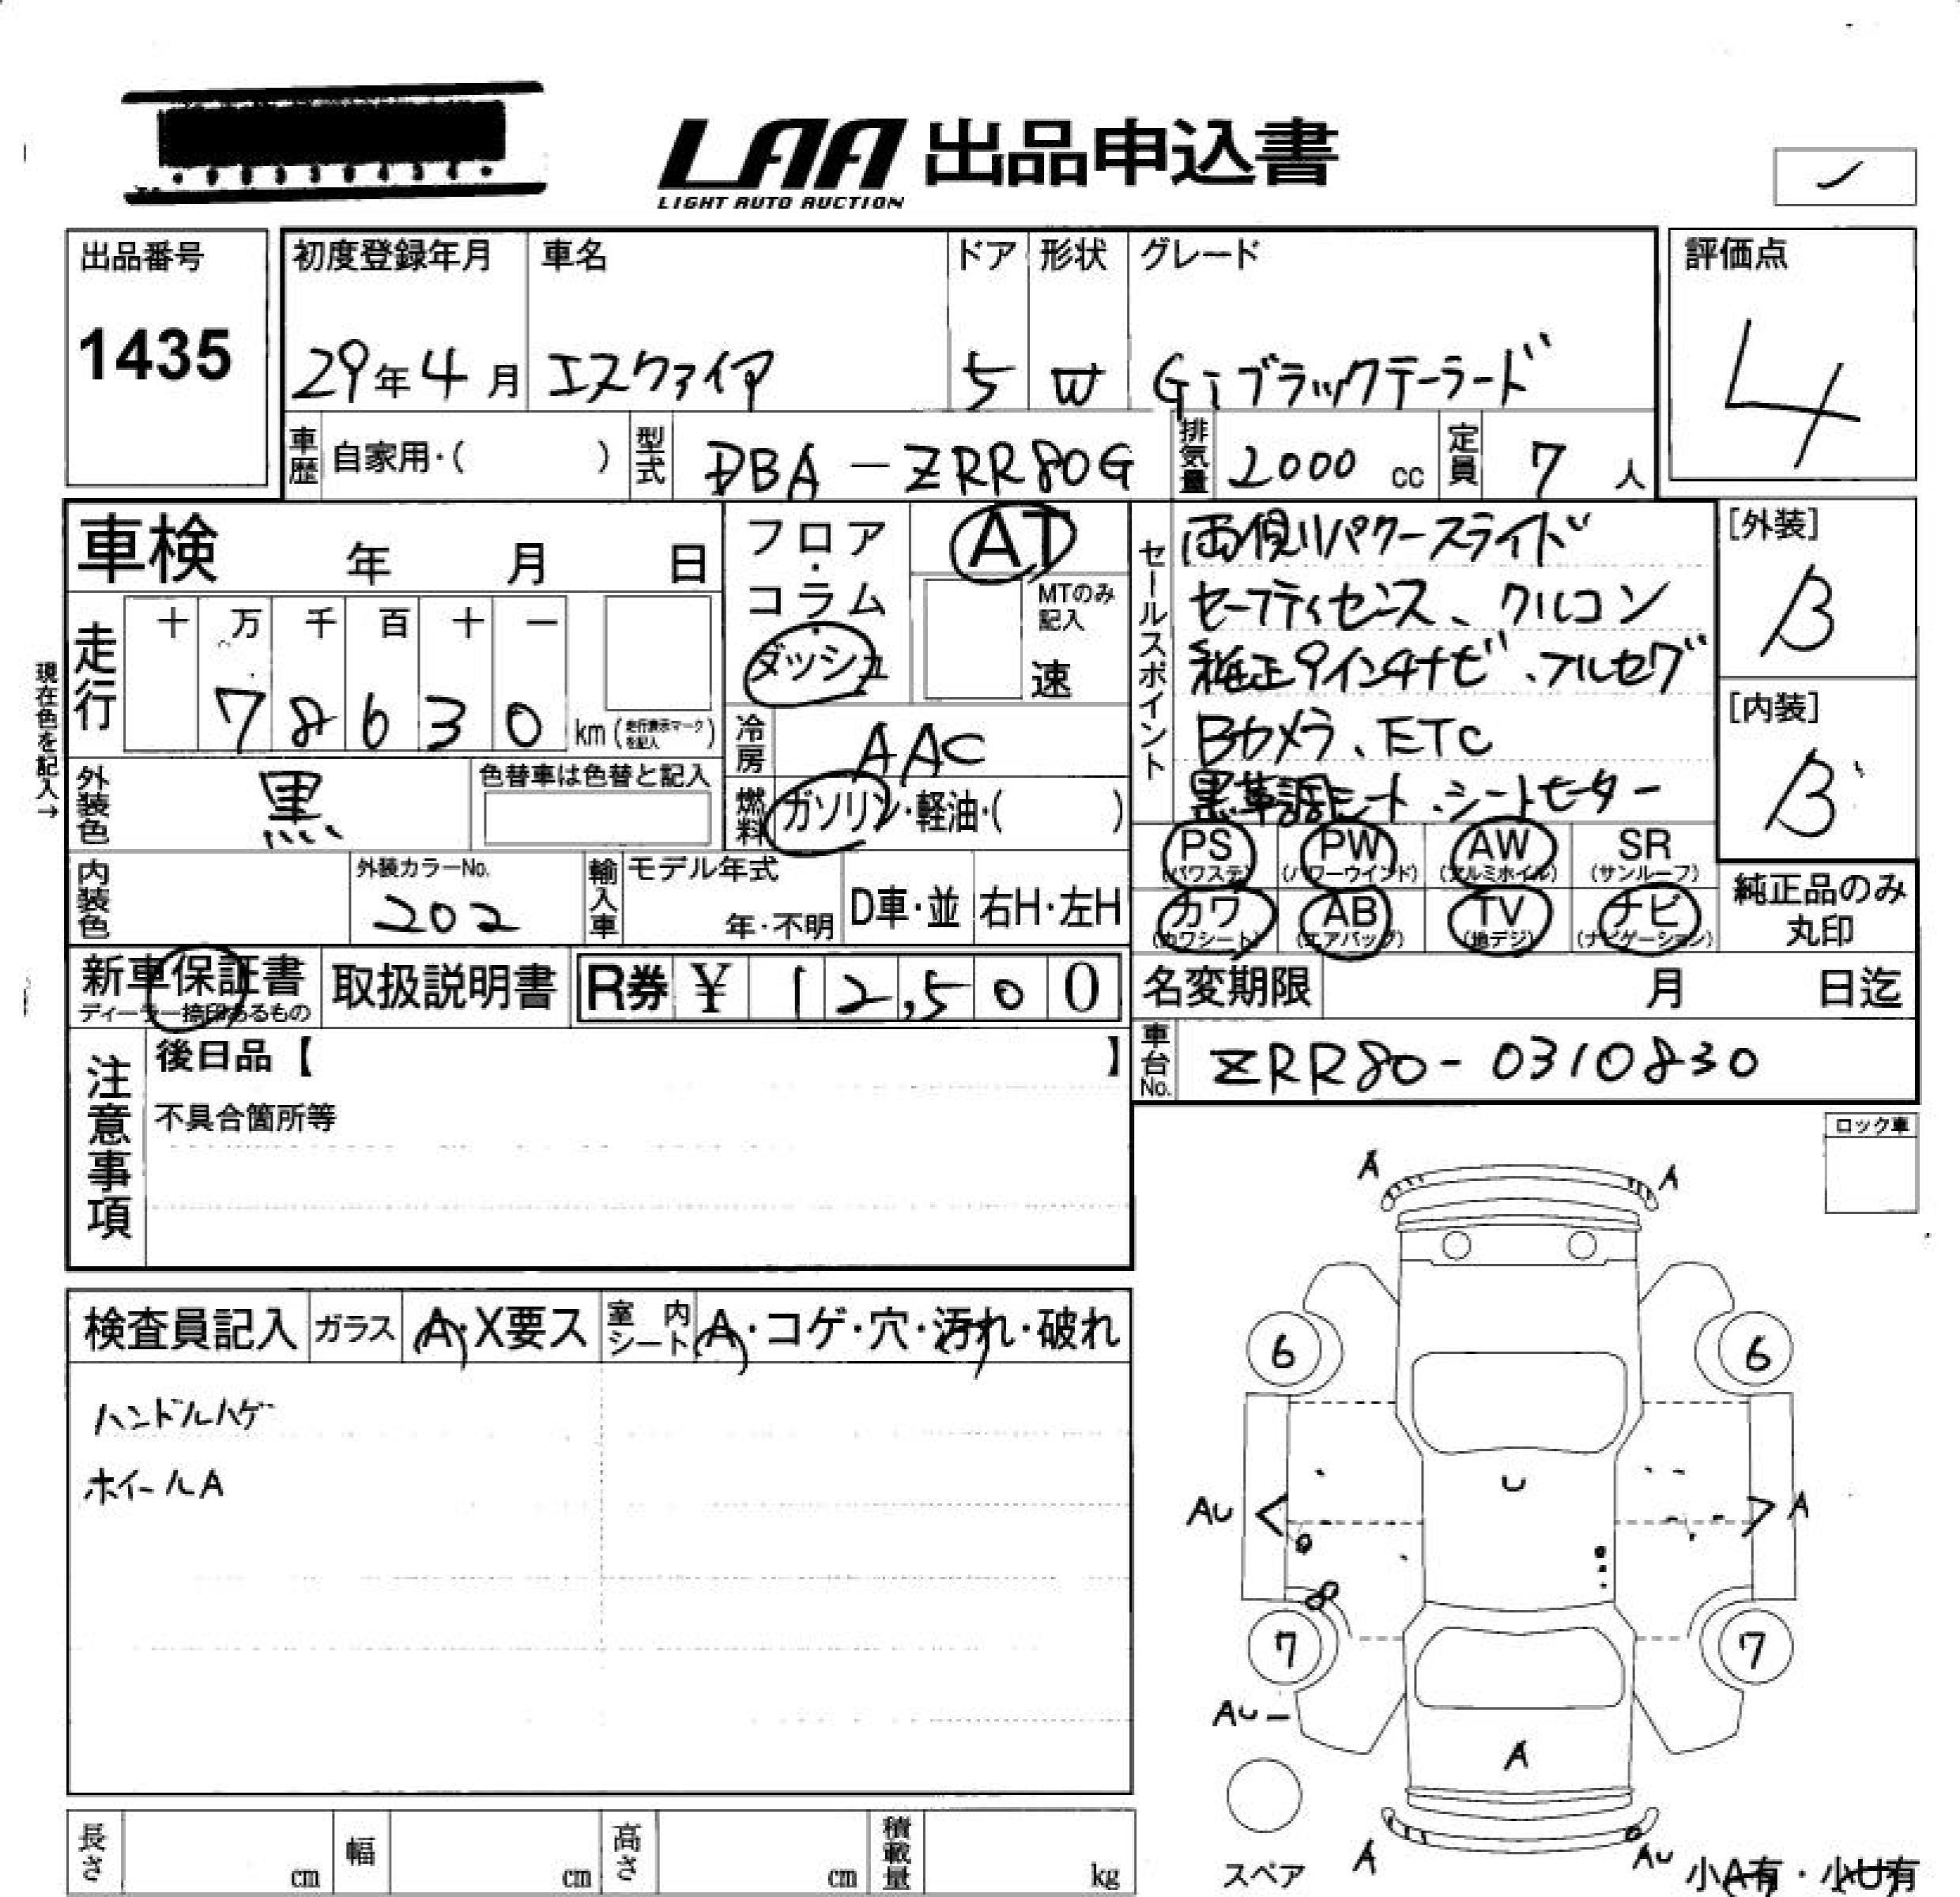 LAA 出品申込書
LIGHT AUTO AUCTION
出品番号
1435
初度登録年月
29年4月
車名
エスクァイア
ドア
5
形状
W
グレード
Gi ブラックテーラード
評価点
4
車歴 自家用・( )
型式 DBA-ZRR80G
排気量 2000 cc
定員 7 人
車検 年 月 日
フロア・コラム・ダッシュ
AT
MTのみ記入
速
セールスポイント
両側パワースライド
セーフティセンス、クルコン
純正9インチナビ、フルセグ
Bカメラ、ETC
黒革調シート、シートヒーター
[外装]
B
[内装]
B
現在色を記入→
走行 十 万 千 百 十 一
78630 km (走行表示マークを記入)
冷房 AAC
外装色 黒
色替車は色替と記入
燃料 ガソリン・軽油・( )
PS (パワステ)
PW (パワーウインド)
AW (アルミホイル)
SR (サンルーフ)
カワ (カワシート)
AB (エアバッグ)
TV (地デジ)
ナビ (ナビゲーション)
純正品のみ
丸印
内装色
外装カラーNo.
202
輸入車
モデル年式
年・不明
D車・並
右H・左H
新車保証書
ディーラー捺印あるもの
取扱説明書
R券 ¥ 12,500
名変期限 月 日迄
車台No. ZRR80-0310830
注意事項
後日品【 】
不具合箇所等
ロック車
検査員記入
ガラス A・X要ス
室内シート A・コゲ・穴・汚れ・破れ
ハンドルハゲ
ホイールA
A
A
6
6
U
AU
A
7
7
AU
A
A
AU
スペア
小A有・小U有
長さ cm
幅 cm
高さ cm
積載量 kg